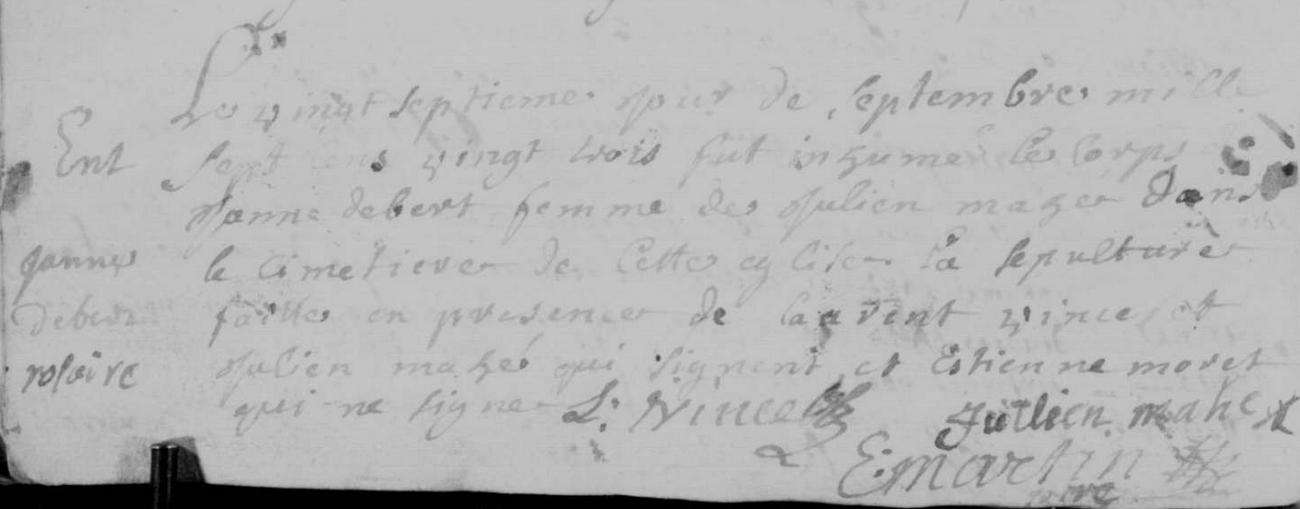 Le vingt septieme jour de septembre mille
Ent
sept cens vingt trois fut inhumé le corps
Janne debert femme de Julien mahe dans
Janne
le cimetiere de cette eglise la sepulture
debert
faitte en presence de laurent vince et
rosaire
Julien mahé qui signent et Estienne moret
qui ne signe L: Vince Jullien mahé
E: martin